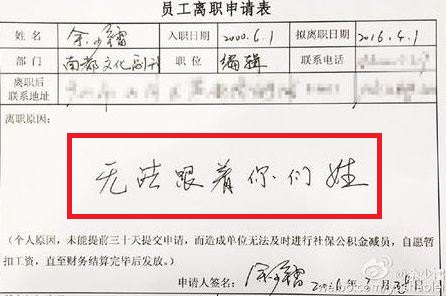 员工离职申请表
姓名 余少镭 入职日期 2000.6.1 拟离职日期 2016.4.1
部门 南都文化副刊 职位 编辑 联系电话
离职后联系地址
离职原因:
无法跟着你们姓
(个人原因,未能提前三十天提交申请,而造成单位无法及时进行社保公积金减员,自愿暂
扣工资,直至财务结算完毕后发放。)
申请人签名: 余少镭 2016.3.28